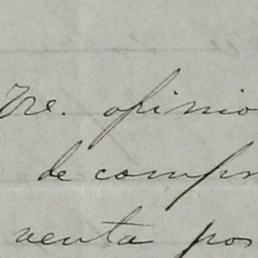 re. opinio
de compr
venta pos